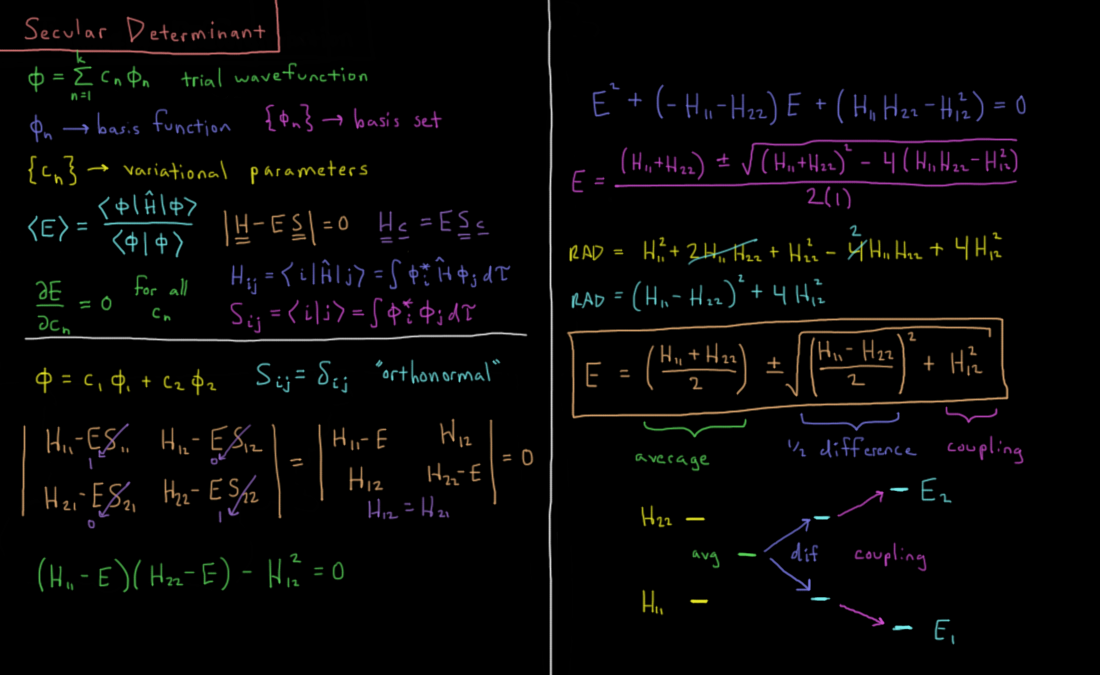 Secular Determinant
ϕ = Σₙ₌₁ᵏ cₙϕₙ trial wavefunction
ϕₙ → basis function {ϕₙ} → basis set
{cₙ} → variational parameters
⟨E⟩ = ⟨ϕ|Ĥ|ϕ⟩ / ⟨ϕ|ϕ⟩ |H - E S| = 0 H c = E S c
∂E/∂cₙ = 0 for all cₙ
Hᵢⱼ = ⟨i|Ĥ|j⟩ = ∫ ϕᵢ* Ĥ ϕⱼ dτ
Sᵢⱼ = ⟨i|j⟩ = ∫ ϕᵢ* ϕⱼ dτ
ϕ = c₁ϕ₁ + c₂ϕ₂ Sᵢⱼ = δᵢⱼ "orthonormal"
| H₁₁-ES₁₁ H₁₂-ES₁₂ | = | H₁₁-E H₁₂ | = 0
1 0
| H₂₁-ES₂₁ H₂₂-ES₂₂ | | H₁₂ H₂₂-E |
0 1 H₁₂ = H₂₁
(H₁₁-E)(H₂₂-E) - H₁₂² = 0
E² + (-H₁₁-H₂₂)E + (H₁₁H₂₂-H₁₂²) = 0
E = ((H₁₁+H₂₂) ± √((H₁₁+H₂₂)² - 4(H₁₁H₂₂-H₁₂²))) / 2(1)
RAD = H₁₁² + 2H₁₁H₂₂ + H₂₂² - 4 2 H₁₁H₂₂ + 4H₁₂²
RAD = (H₁₁-H₂₂)² + 4H₁₂²
E = ((H₁₁+H₂₂)/2) ± √(((H₁₁-H₂₂)/2)² + H₁₂²)
average 1/2 difference coupling
E₂
H₂₂
avg dif coupling
H₁₁
E₁